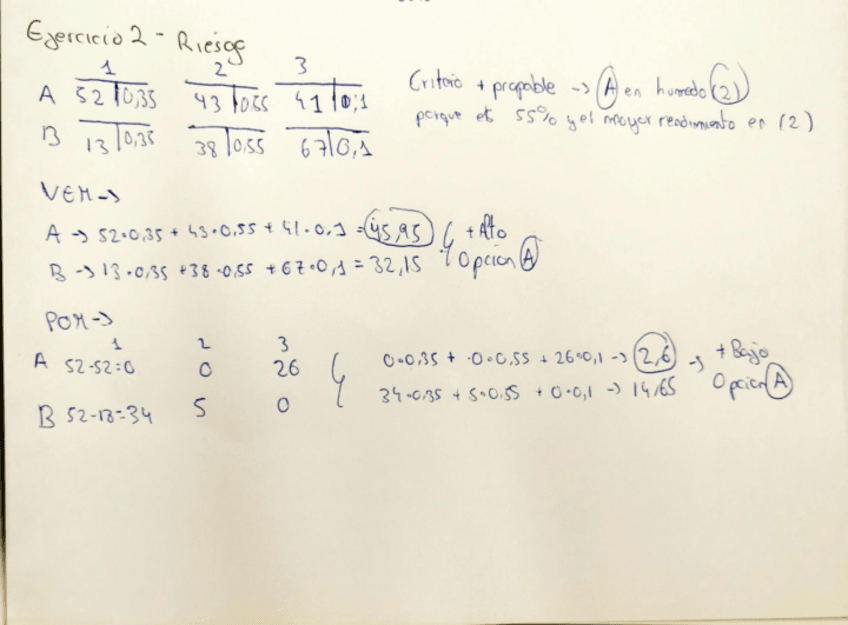 Ejercicio 2 - Riesgo
1 2 3
A 52 | 0,35 43 | 0,55 41 | 0,1
B 13 | 0,35 38 | 0,55 67 | 0,1
Criterio + propable -> A en humedo (2)
porque es 55% y el mayor rendimiento en (2)
VEM ->
A -> 52·0,35 + 43·0,55 + 41·0,1 = 45,95
B -> 13·0,35 + 38·0,55 + 67·0,1 = 32,15
+ Alto
Opcion A
POM ->
1 2 3
A 52-52=0 0 26
B 52-13=34 5 0
0·0,35 + ·0·0,55 + 26·0,1 -> 2,6
34·0,35 + 5·0,55 + 0·0,1 -> 14,65
-> + Bajo
Opcion A